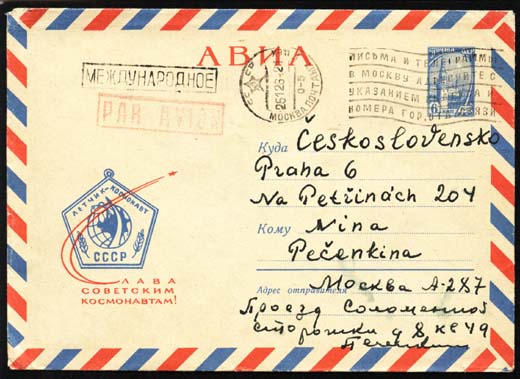 АВИА
МЕЖДУНАРОДНОЕ
PAR AVION
МОСКВА ПОЧТАМТ
ПИСЬМА И ТЕЛЕГРАММЫ
В МОСКВУ АДРЕСУЙТЕ С
УКАЗАНИЕМ
НОМЕРА ГОР. ОТД. СВЯЗИ
Куда Československo
Praha 6
Na Petřinách 204
Кому Nina
Pečenkina
ЛЕТЧИК-КОСМОНАВТ
СССР
СЛАВА
СОВЕТСКИМ
КОСМОНАВТАМ!
Адрес отправителя Москва А-287
Проезд Соломенной
сторожки д 8 кв 49